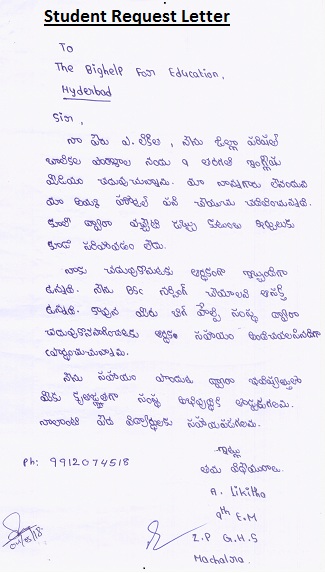 Student Request Letter
To
The Bighelp For Education,
Hyderbad
Sir,
నా పేరు ఎ. లిఖిత, నేను జిల్లా పరిషత్
బాలికల పాఠశాల నందు 9 తరగతి ఇంగ్లీషు
మీడియం చదువుచున్నాను. మా నాన్నగారు లేనందున
మా అమ్మ పని చేయుచు చదివించుచున్నది.
కూలి ద్వారా వచ్చేటి డబ్బు కుటుంబ
కూడా సరిపోవడం లేదు.
నాకు చదువుకొనుటకు ఆర్థికంగా ఇబ్బందిగా
ఉన్నది. నేను BSC నర్సింగ్ చేయాలని ఆసక్తి
ఉన్నది. కావున మీరు బిగ్ హెల్ప్ సంస్థ ద్వారా
ఆర్థిక సహాయం
నేను సహాయం పొందుట ద్వారా భవిష్యత్తులో
మీకు కృతజ్ఞతగా సంస్థ అభివృద్ధికి
నాలాంటి పేద విద్యార్థులకు సహాయపడగలను.
ఇట్లు
తమ విధేయురాలు
Ph: 9912074518
A. Likitha
9th E.M
Z.P G.H.S
Macharla.